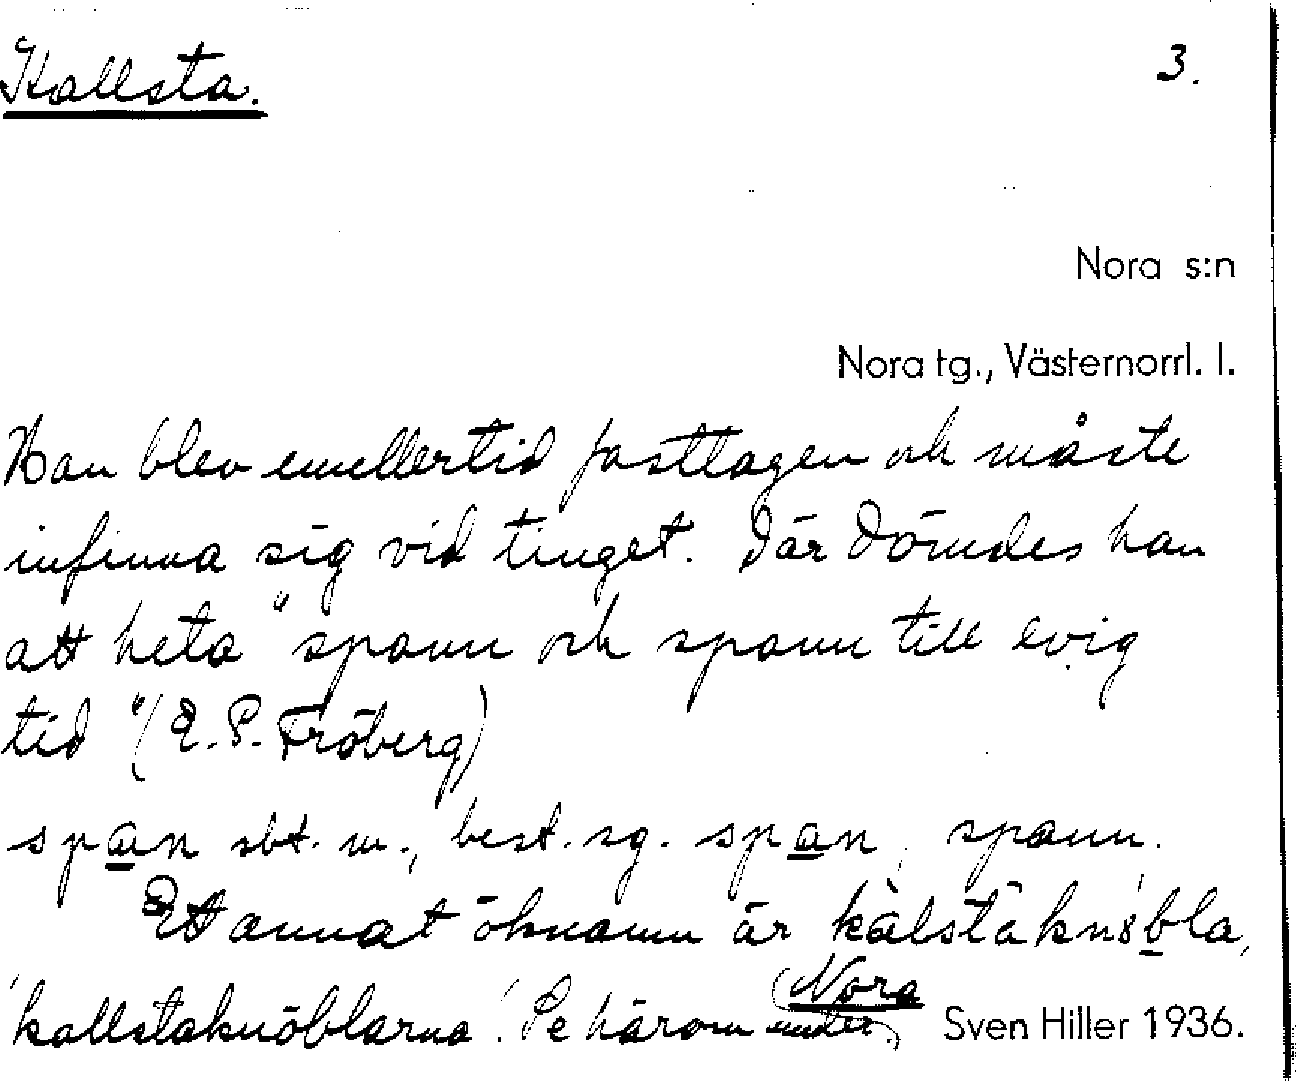 Kallsta.
3.
Nora s:n
Nora tg., Västernorrl. l.
Han blev emellertid fasttagen och måste
infinna sig vid tinget. Där dömdes han
att heta "spann och spann till evig
tid" (E. P. Fröberg)
span sbt. m., best. sg. span, spann.
Ett annat öknamn är kàlstākn8bla,
'kallstaknöblarna'. Se härom under Nora
Sven Hiller 1936.